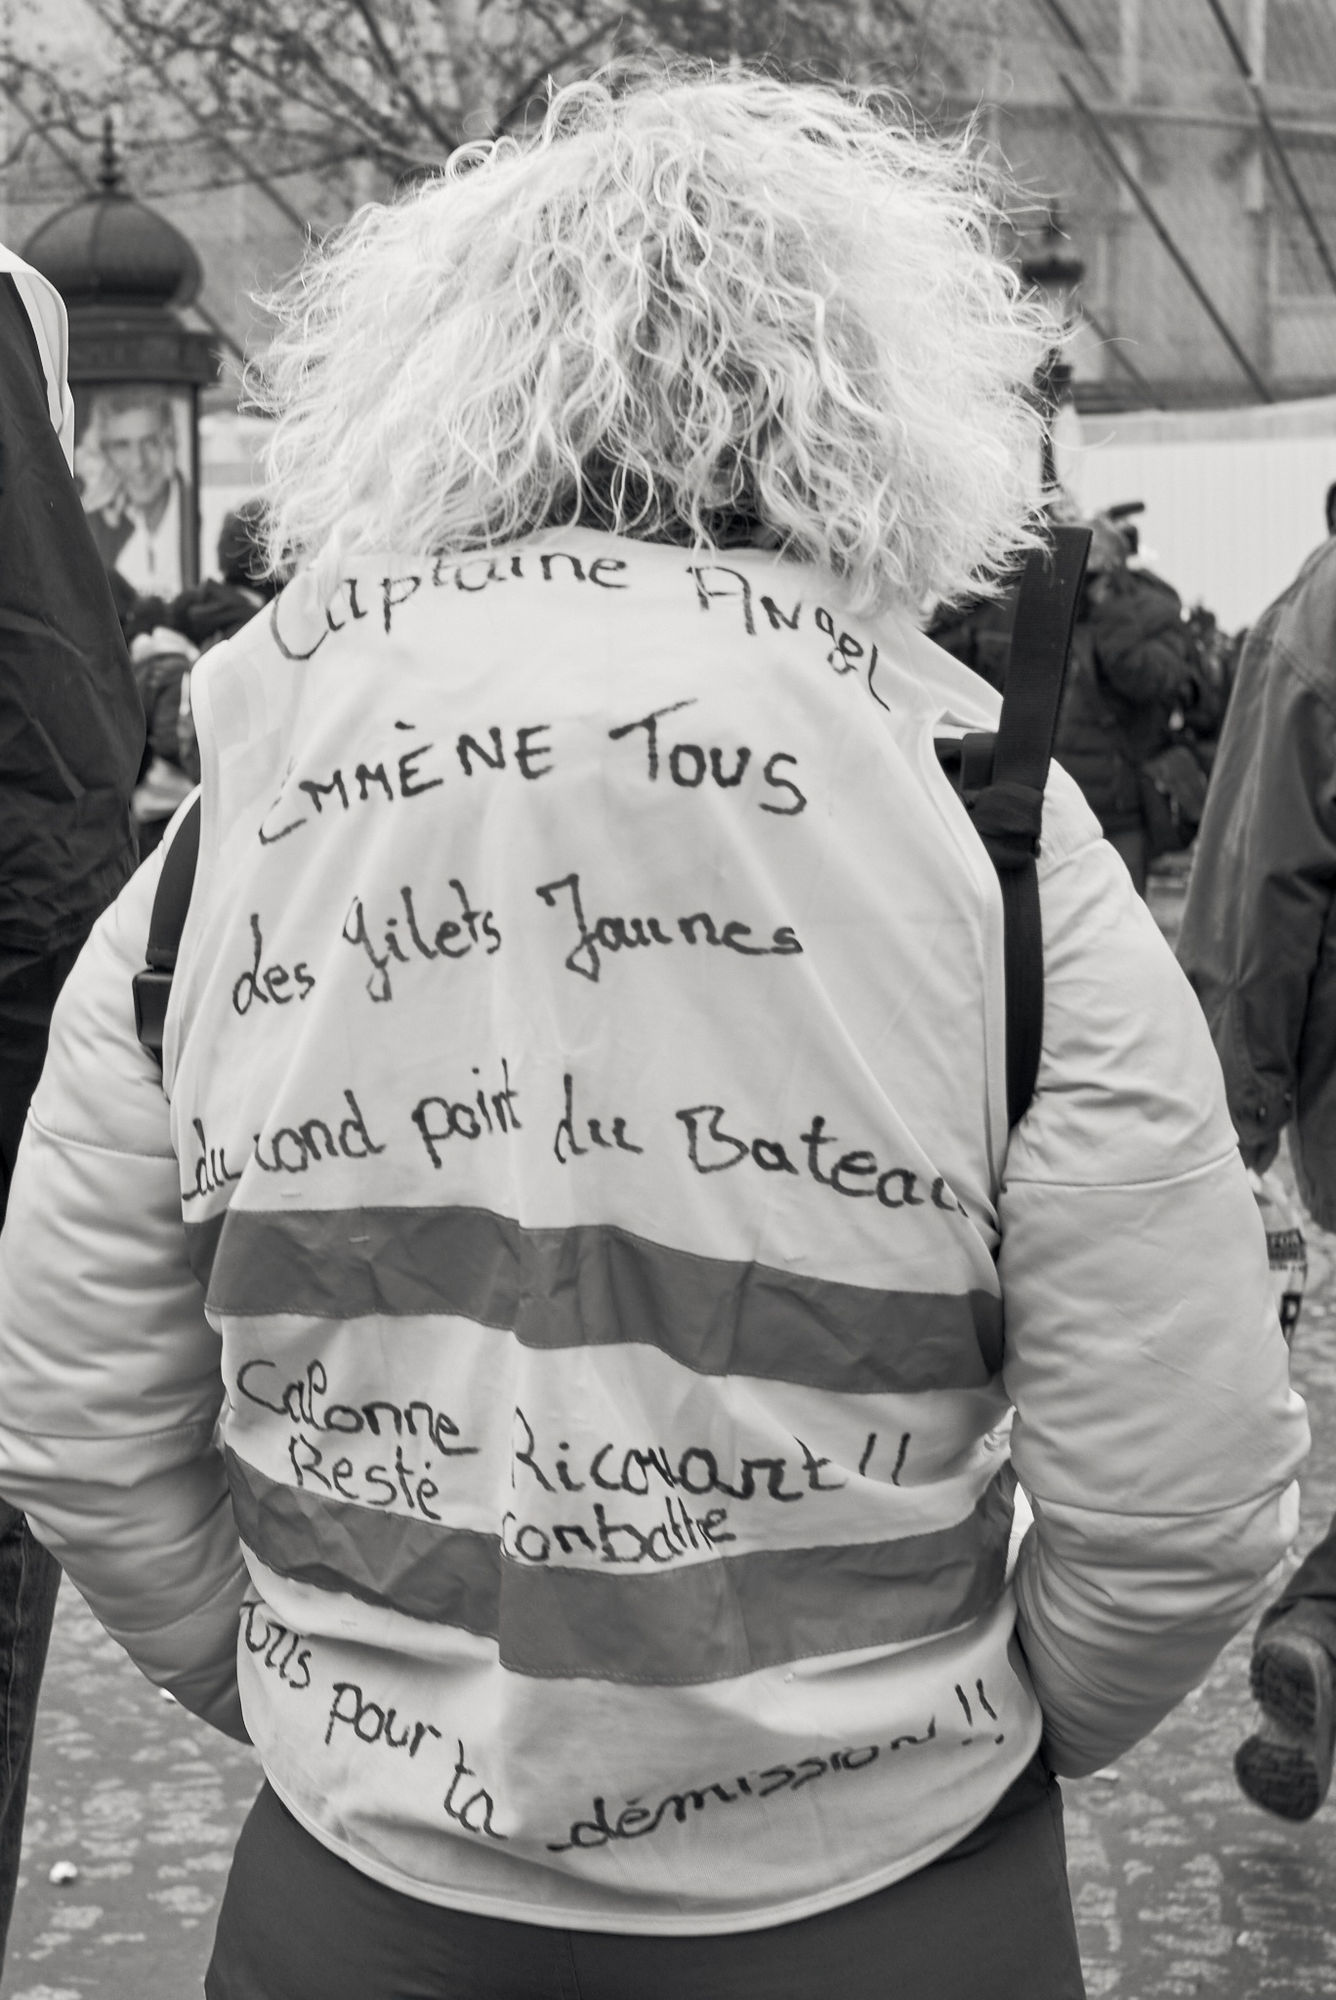 Captaine Angel
EMMÈNE Tous
des gilets Jaunes
du rond point du Bateau
Calonne Ricouart !!
Resté combattre
Tous pour ta démission !!